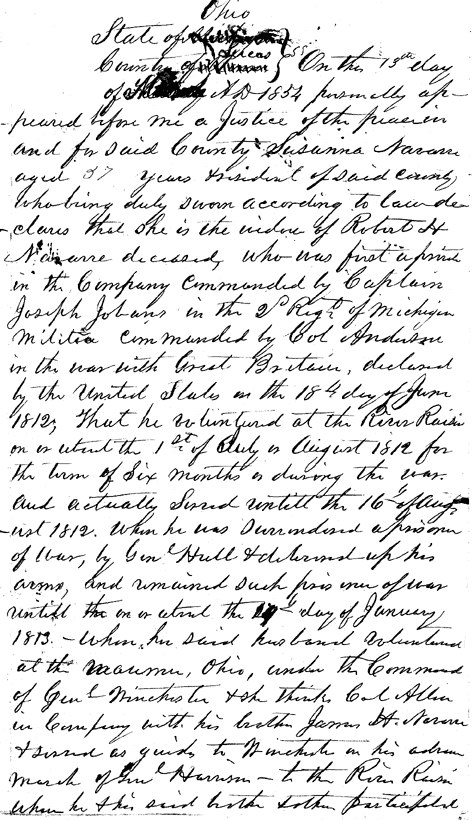 Ohio
State of
Lucas
County of } SS On this 15th day
of A.D. 1854 personally ap-
peared before me a Justice of the peace in
and for said County Susanna Navarre
aged 57 years & resident of said County,
who being duly sworn according to law de
clares that she is the widow of Robert H
Navarre deceased, who was first a private
in the Company commanded by Captain
Joseph Jobans in the 2d Regt of Michigan
Militia commanded by Col Anderson
in the war with Great Britain, declared
by the United States on the 18th day of June
1812; That he volunteered at the River Raisin
on or about the 1st of July or August 1812 for
the term of Six months or during the war.
And actually Served untill the 16th of Aug-
ust 1812. When he was surrendered a prisoner
of War, by Genl Hull & delivered up his
arms, and remained such prisoner of war
untill the on or about the day of January
1813. - When, her said husband volunteered
at the Maumee, Ohio, under the Command
of Genl Winchester & she thinks Col Allen
in Company with his brother James H. Navarre
& served as guide to Winchester on his
march of Genl Harrison - to the River Raisin
when he & his said brother & others participated